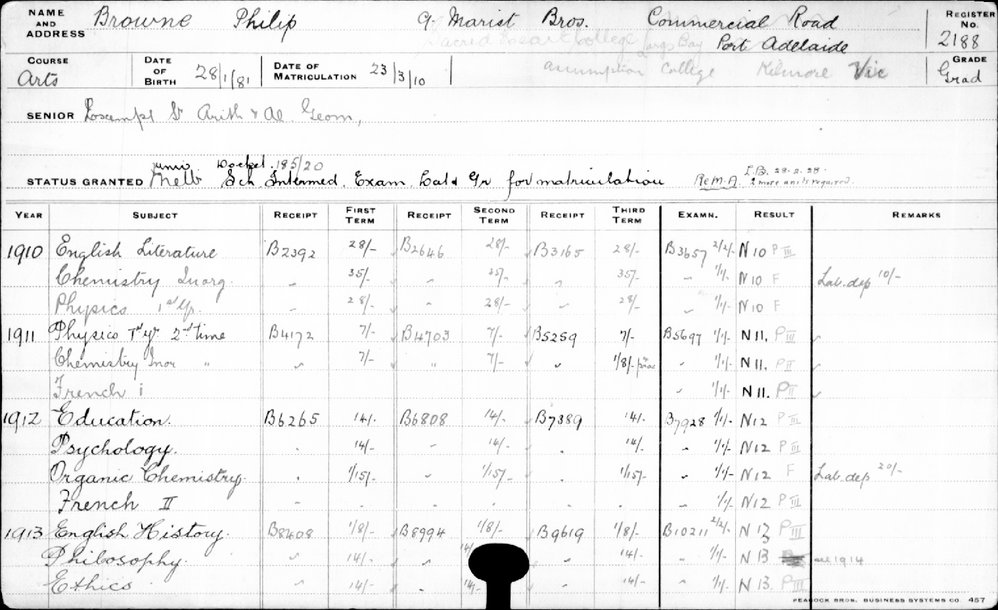 NAME AND ADDRESS Browne Philip c/o Marist Bros. Commercial Road REGISTER No.
Sacred Heart College Largs Bay Port Adelaide 2188
COURSE Arts DATE OF BIRTH 28/1/81 DATE OF MATRICULATION 23/3/10 Assumption College Kilmore Vic GRADE Grad
SENIOR Arith & Geom,
Univ. Docket 185/20
STATUS GRANTED Melb Sch Intermed. Exam, Lat & Gr for matriculation Rem.A. 2 more units required.
YEAR SUBJECT RECEIPT FIRST TERM RECEIPT SECOND TERM RECEIPT THIRD TERM EXAMN. RESULT REMARKS
1910 English Literature B2392 28/- B2646 28/- B3165 28/- B3657 2/2/- N10 P III
Chemistry Inorg. " 35/- " 35/- " 35/- " 1/1/- N10 F Lab. dep 10/-
Physics 1st yr. " 28/- " 28/- " 28/- " 1/1/- N10 F
1911 Physics 1st yr 2nd time B4172 7/- B4703 7/- B5259 7/- B5697 1/1/- N11. P III
Chemistry Inor " " 7/- " 7/- " 1/8/- " 1/1/- N11. P II
French i " 1/1/- N11. P II
1912 Education. B6265 14/- B6808 14/- B7389 14/- B7928 1/1/- N12 P III
Psychology. 14/- " 14/- . 14/- " 1/1/- N12 P III
Organic Chemistry. . 1/15/- " 1/15/- . 1/15/- " 1/1/- N12 F Lab. dep 20/-
French II 1/1/- N12 P III
1913 English History. B8408 1/8/- B8994 1/8/- B9619 1/8/- B10211 2/2/- N 13 P III
Philosophy. " 14/- 14/- 14/- " 1/1/- N 13 1914
Ethics " 14/- 14/- " 14/- " 1/1/- N 13. P III
PEACOCK BROS. BUSINESS SYSTEMS CO. 457